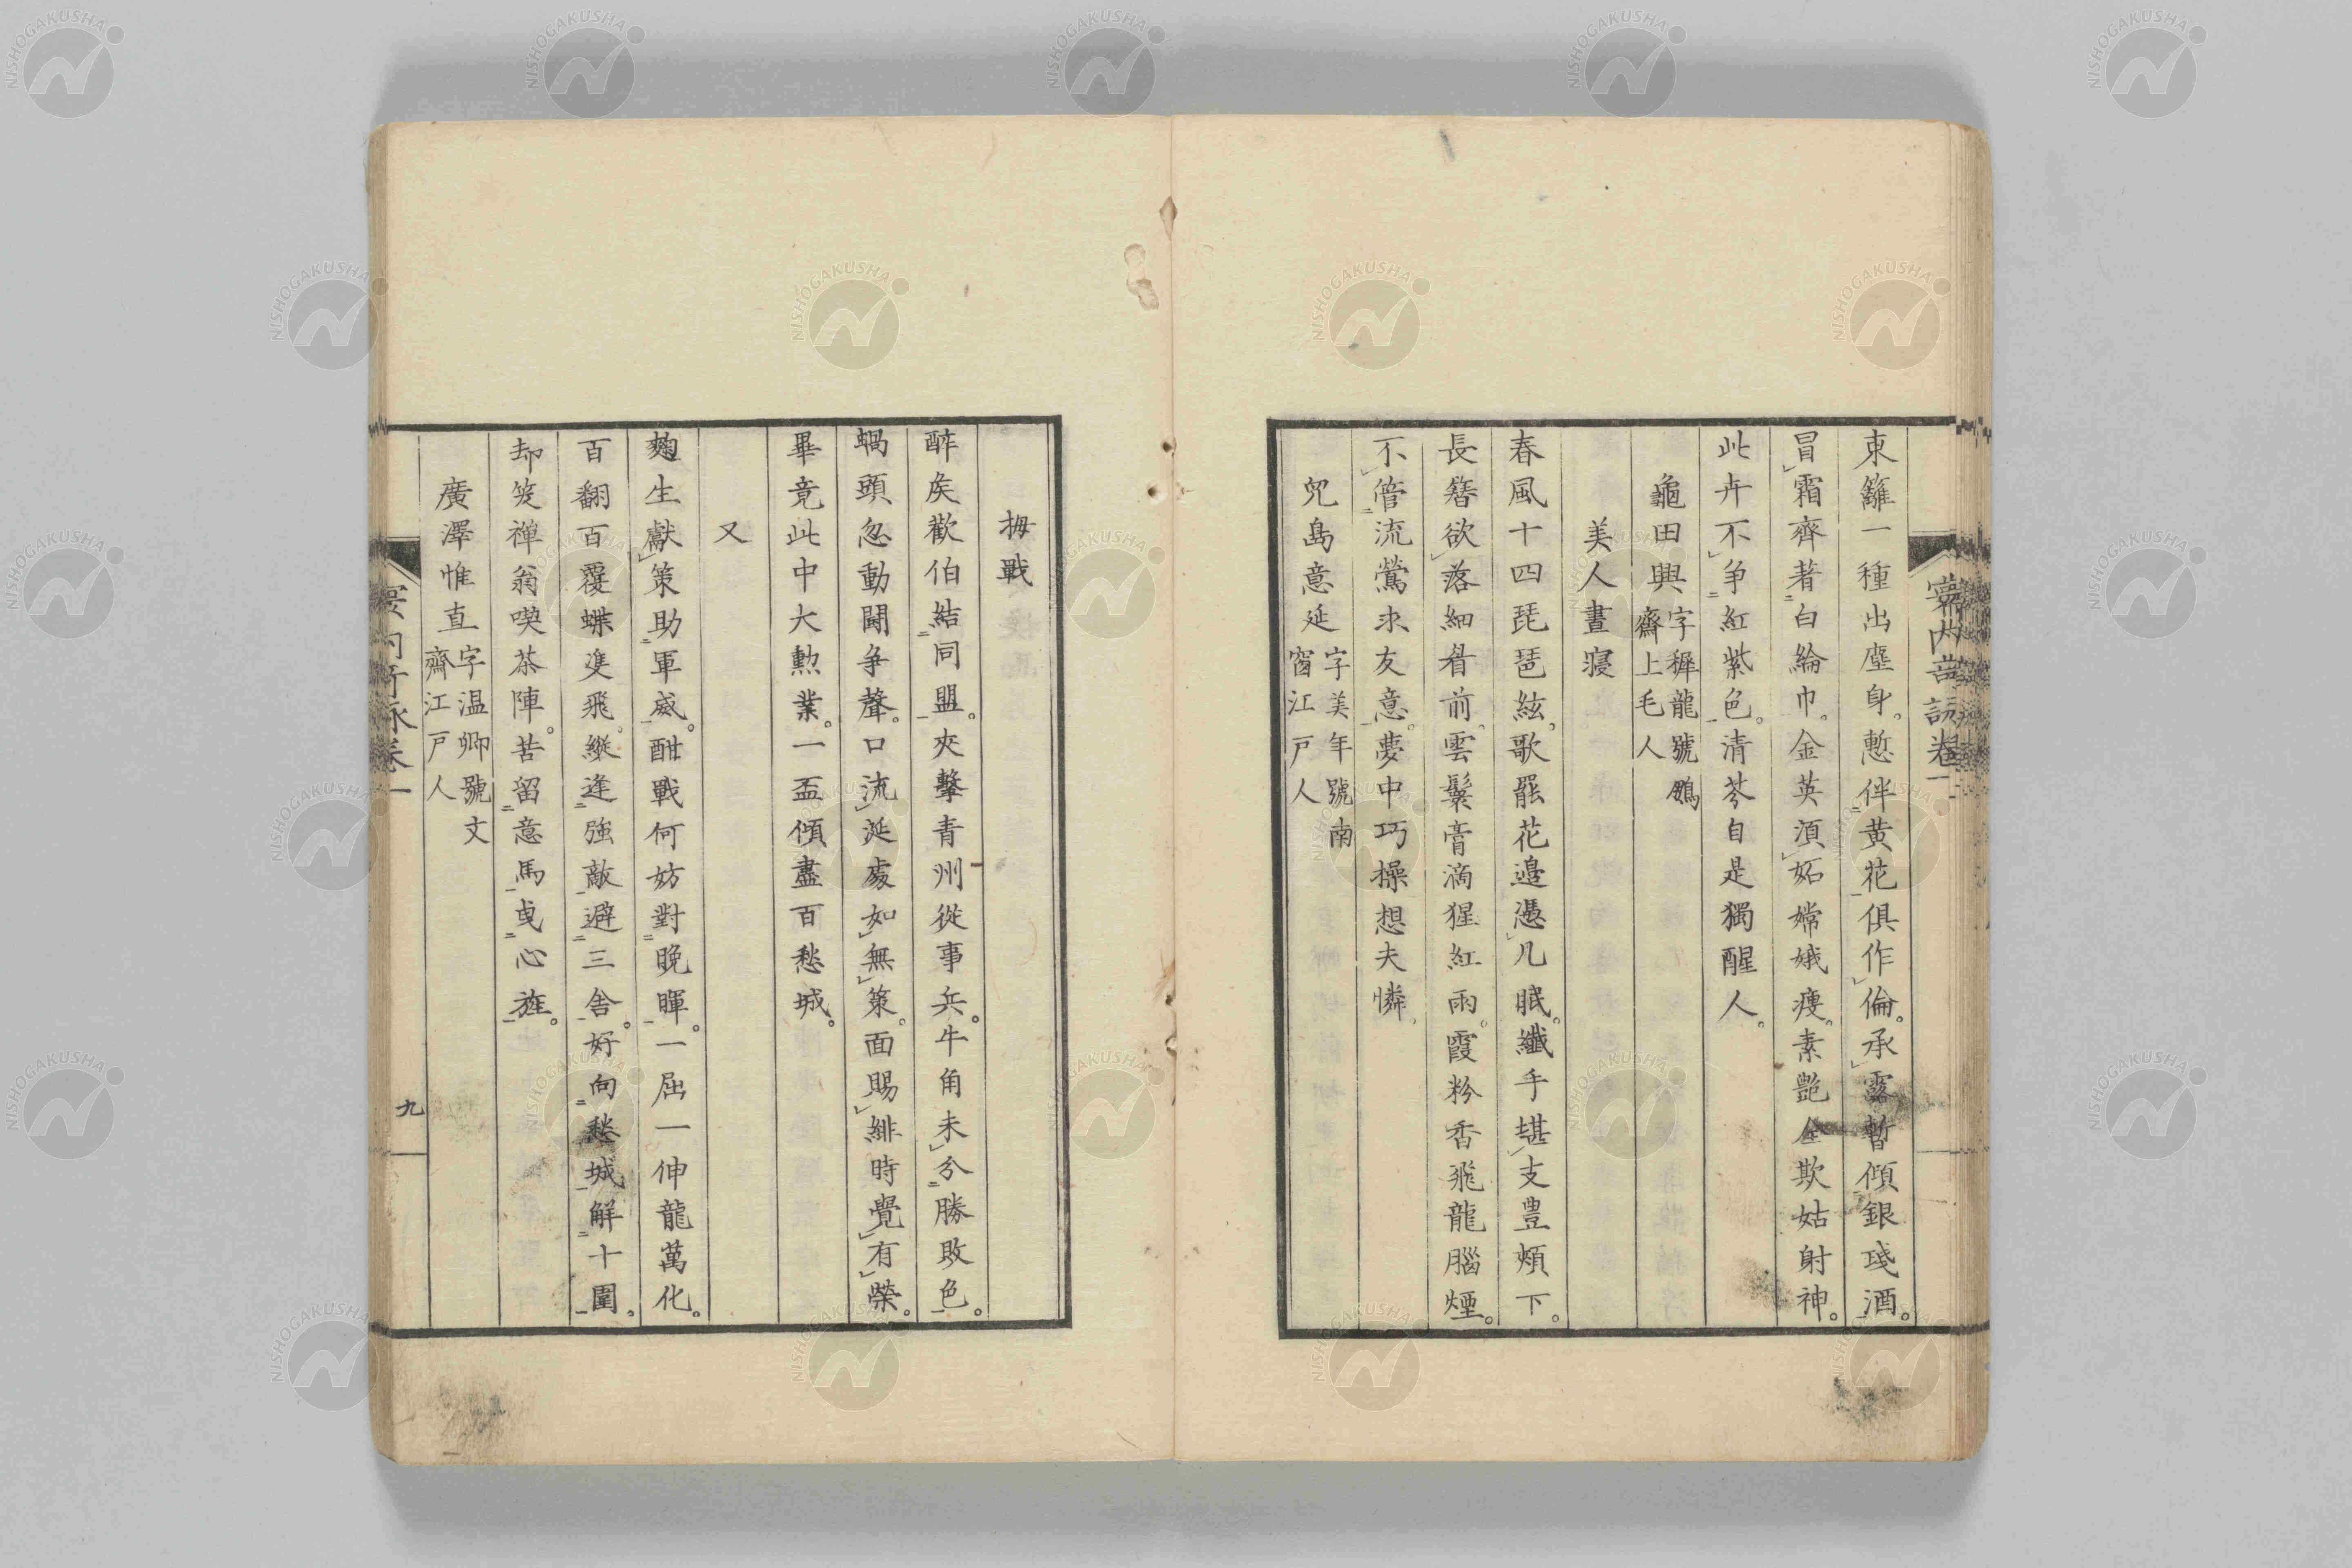 東籬一種出塵身。慙伴黄花俱作倫。承露暫傾銀琖酒。
冒霜齊著白綸巾。金英湏妬嫦娥痩。素艶全欺姑射神。
此卉不争紅紫色。清芬自是獨醒人。
龜田興字穉龍號鵬齋上毛人
美人晝寝
春風十四琵琶絃。歌罷花邉憑几眠。纖手堪支豊頰下。
長簪欲落細眉前。雲鬟膏滴猩紅雨。霞粉香飛龍腦煙。
不管流鶯求友意。夢中巧操想夫憐。
兒島意延字美年號南窗江戸人
拇戰
醉矦歡伯結同盟。夾擊青州從事兵。牛角未分勝敗色。
蝸頭忽動鬪争聲。口流涎處如無策。面賜緋時覺有榮。
畢竟此中大勲業。一盃傾盡百愁城。
又
麴生獻策助軍威。酣戰何妨對晩暉。一屈一伸龍萬化。
百翻百覆蝶雙飛。縱逢強敵避三舎。好向愁城解十圍。
却笑禅翁喫茶陣。苦留意馬曵心旌。
廣澤惟直字温卿號文齋江戸人
九
NISHOGAKUSHA